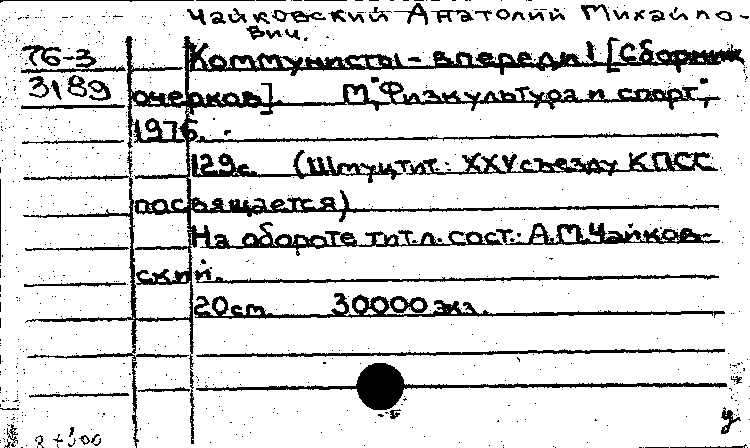 Чайковский Анатолий Михайло-
вич.
76-3 Коммунисты - впереди! [Сборник
3189 очерков]. М, "Физкультура и спорт",
1976.
129с. (Шмуцтит.: XXV съезду КПСС
посвящается)
На обороте тит.л. сост.: А.М.Чайков-
ский.
20см. 30000 экз.